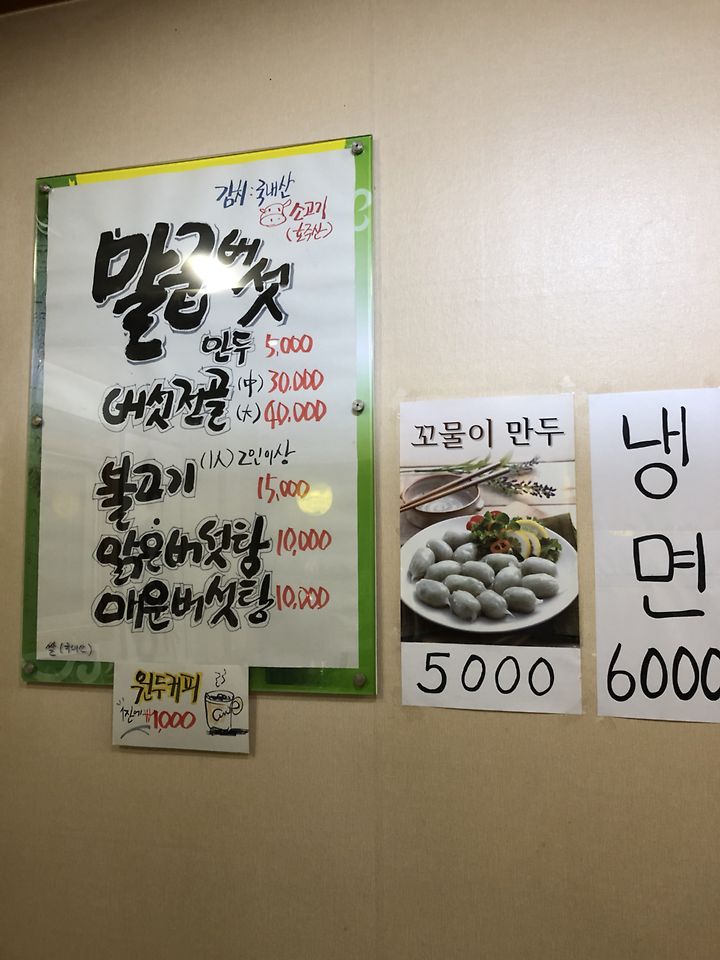 김치:국내산
소고기
(호주산)
말굽버섯
만두 5,000
버섯전골 (中) 30,000
(大) 40,000
불고기 (1人) 2인이상
15,000
맑은버섯탕 10,000
매운버섯탕 10,000
쌀(국내산)
원두커피
1잔에 ₩1,000
꼬물이 만두
5000
냉
면
6000